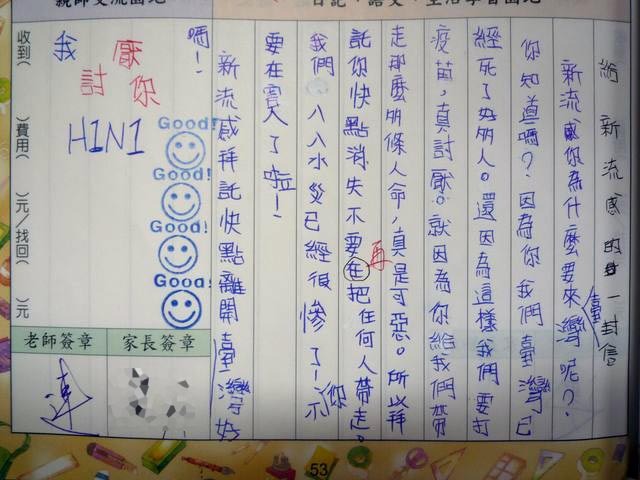 親師交流園地
日記、語文、生活學習園地
給新流感的一封信
新流感你為什麼要來臺灣呢？
你知道嗎？因為你我們臺灣已
經死了好多人。還因為這樣我們要打
疫苗，真討厭。就因為你給我們帶
走那麼多條人命，真是可惡。所以拜
託你快點消失不要在把任何人帶走。
再
我們八八水災已經很慘了！你
要在害人了啦！
新流感拜託快點離開臺灣好
嗎！
我
討厭你
H1N1
Good!
Good!
Good!
Good!
收到（ ）費用（ ）元/找回（ ）元
家長簽章
老師簽章
連
53